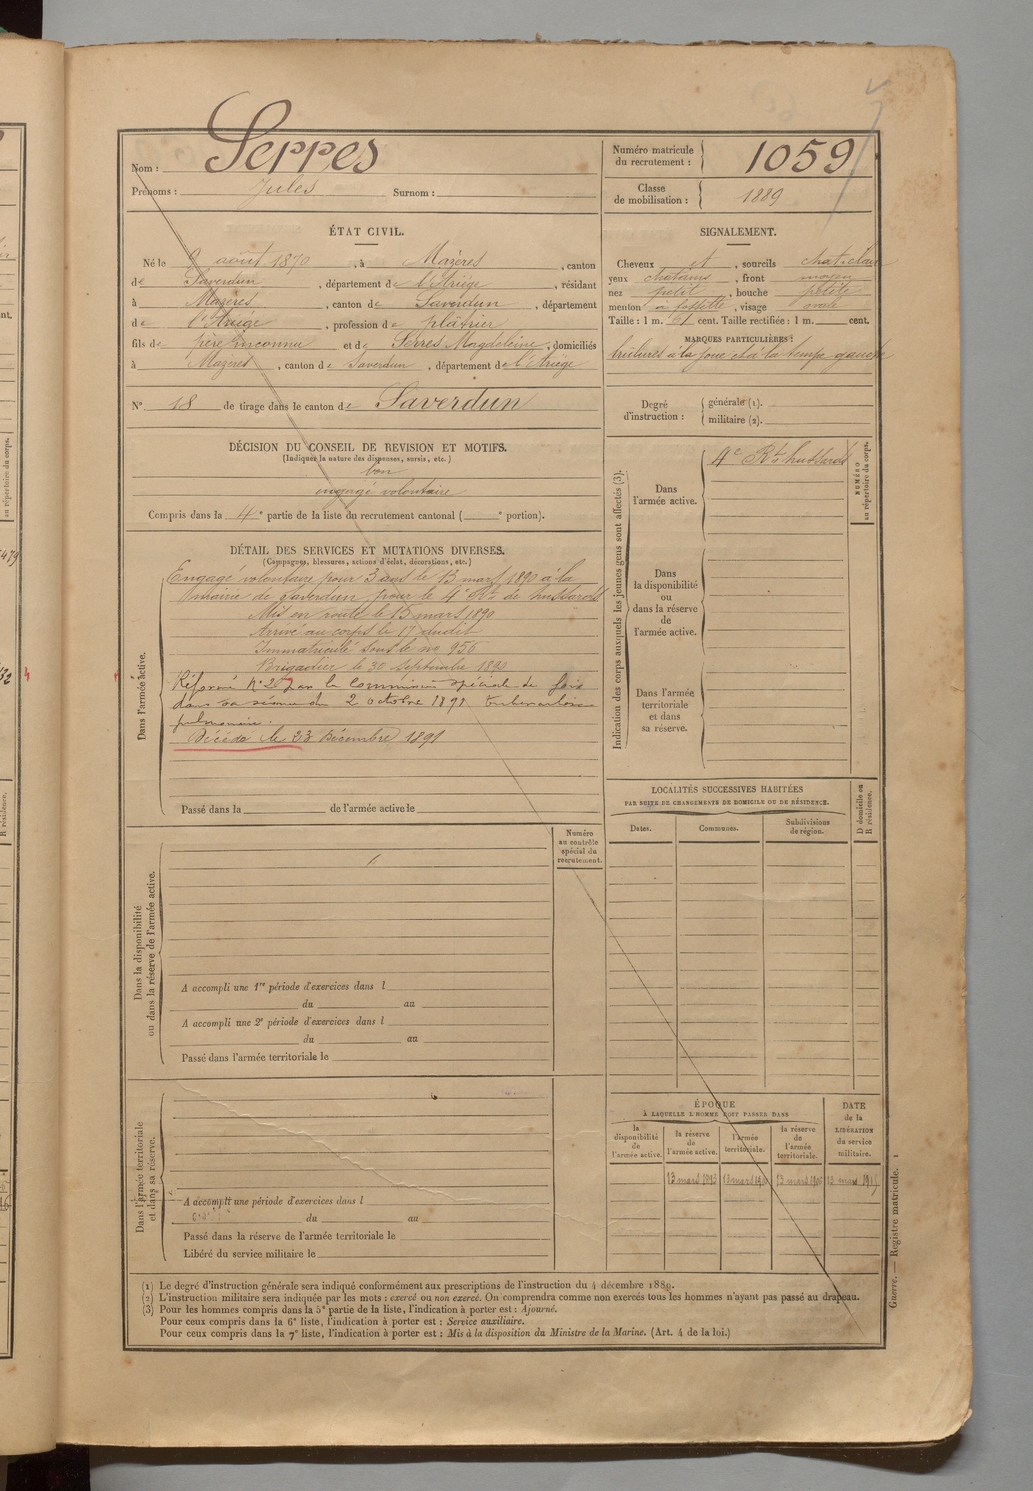 Nom : Serres
Prénoms : Jules Surnom :
Numéro matricule du recrutement : 1059
Classe de mobilisation : 1889
ÉTAT CIVIL.
Né le 9 août 1870, à Mazères, canton
de Saverdun, département de l'Ariège, résidant
à Mazères, canton de Saverdun, département
de l'Ariège, profession de plâtrier
fils de père inconnu et de Serres Magdeleine, domiciliés
à Mazères, canton de Saverdun, département de l'Ariège
N° 18 de tirage dans le canton de Saverdun
DÉCISION DU CONSEIL DE REVISION ET MOTIFS.
(Indiquer la nature des dispenses, sursis, etc.)
bon
engagé volontaire
Compris dans la 4e partie de la liste du recrutement cantonal ( e portion).
DÉTAIL DES SERVICES ET MUTATIONS DIVERSES.
(Campagnes, blessures, actions d'éclat, décorations, etc.)
Dans l'armée active.
Engagé volontaire pour 3 ans le 13 mars 1890 à la
mairie de Saverdun pour le 4e Rt de hussards
Mis en route le 15 mars 1890
Arrivé au corps le 17 dudit
Immatriculé sous le no 956
Brigadier le 30 septembre 1890
Réformé N° 2 par la Commission spéciale de Foix
dans sa séance du 2 octobre 1891 tuberculose
pulmonaire.
Décédé le 23 Décembre 1891
Passé dans la de l'armée active le
Numéro au contrôle spécial du recrutement.
Dans la disponibilité ou dans la réserve de l'armée active.
A accompli une 1re période d'exercices dans l
du au
A accompli une 2e période d'exercices dans l
du au
Passé dans l'armée territoriale le
Dans l'armée territoriale et dans sa réserve.
A accompli une période d'exercices dans l
du au
Passé dans la réserve de l'armée territoriale le
Libéré du service militaire le
SIGNALEMENT.
Cheveux et, sourcils chat. clair
yeux chatains, front moyen
nez petit, bouche petite
menton à fossette, visage ovale
Taille : 1 m. cent. Taille rectifiée : 1 m. cent.
MARQUES PARTICULIÈRES :
brûlures à la joue et à la tempe gauche
Degré d'instruction :
générale (1).
militaire (2).
Indication des corps auxquels les jeunes gens sont affectés (3).
Dans l'armée active.
4e Rt hussards
NUMÉRO au répertoire du corps.
Dans la disponibilité ou dans la réserve de l'armée active.
Dans l'armée territoriale et dans sa réserve.
LOCALITÉS SUCCESSIVES HABITÉES
PAR SUITE DE CHANGEMENTS DE DOMICILE OU DE RÉSIDENCE.
Dates. Communes. Subdivisions de région. D domicile ou R résidence.
ÉPOQUE
À LAQUELLE L'HOMME DOIT PASSER DANS
la disponibilité de l'armée active.
la réserve de l'armée active.
l'armée territoriale.
la réserve de l'armée territoriale.
DATE de la LIBÉRATION du service militaire.
13 mars 1893 13 mars 13 mars 13 mars
(1) Le degré d'instruction générale sera indiqué conformément aux prescriptions de l'instruction du 4 décembre 1889.
(2) L'instruction militaire sera indiquée par les mots : exercé ou non exercé. On comprendra comme non exercés tous les hommes n'ayant pas passé au drapeau.
(3) Pour les hommes compris dans la 5e partie de la liste, l'indication à porter est : Ajourné.
Pour ceux compris dans la 6e liste, l'indication à porter est : Service auxiliaire.
Pour ceux compris dans la 7e liste, l'indication à porter est : Mis à la disposition du Ministre de la Marine. (Art. 4 de la loi.)
Guerre. — Registre matricule. 1